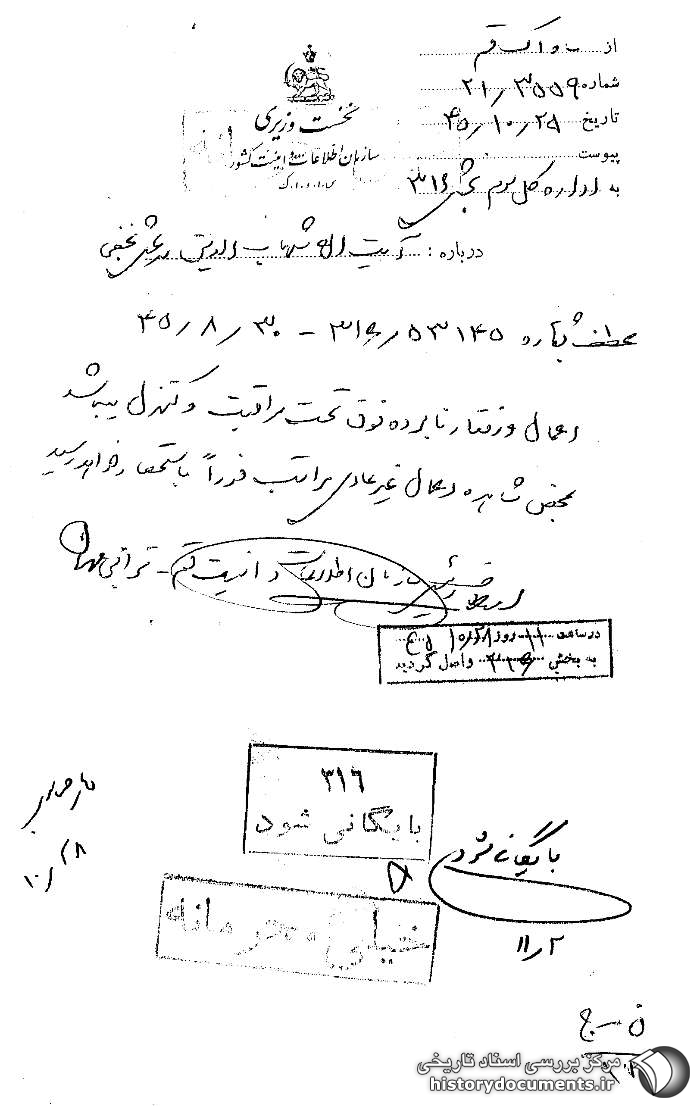 از ساواک قم
شماره ۲۱/۳۵۵۹
تاریخ ۴۵/۱۰/۲۵
پیوست
نخست وزیری
سازمان اطلاعات و امنیت کشور
س.ا.و.ا.ک
به اداره کل سوم بخش ۳۱۶
درباره : آیت اله شهاب الدین مرعشی نجفی
عطف بشماره ۵۳۱۴۵/۳۱۶ – ۴۵/۸/۳۰
اعمال و رفتار نامبرده فوق تحت مراقبت و کنترل میباشد
بمحض مشاهده اعمال غیر عادی مراتب فوراً باستحضار خواهد رسید
رئیس سازمان اطلاعات و امنیت قم -
در ساعت ۱۱ روز
به بخش ۳۱۶ واصل گردید
۳۱۶
بایگانی شود
بایگانی شود
۱۱/۲
۱۰/۲۸
خیلی محرمانه
مرکز بررسی اسناد تاریخی
historydocuments.ir